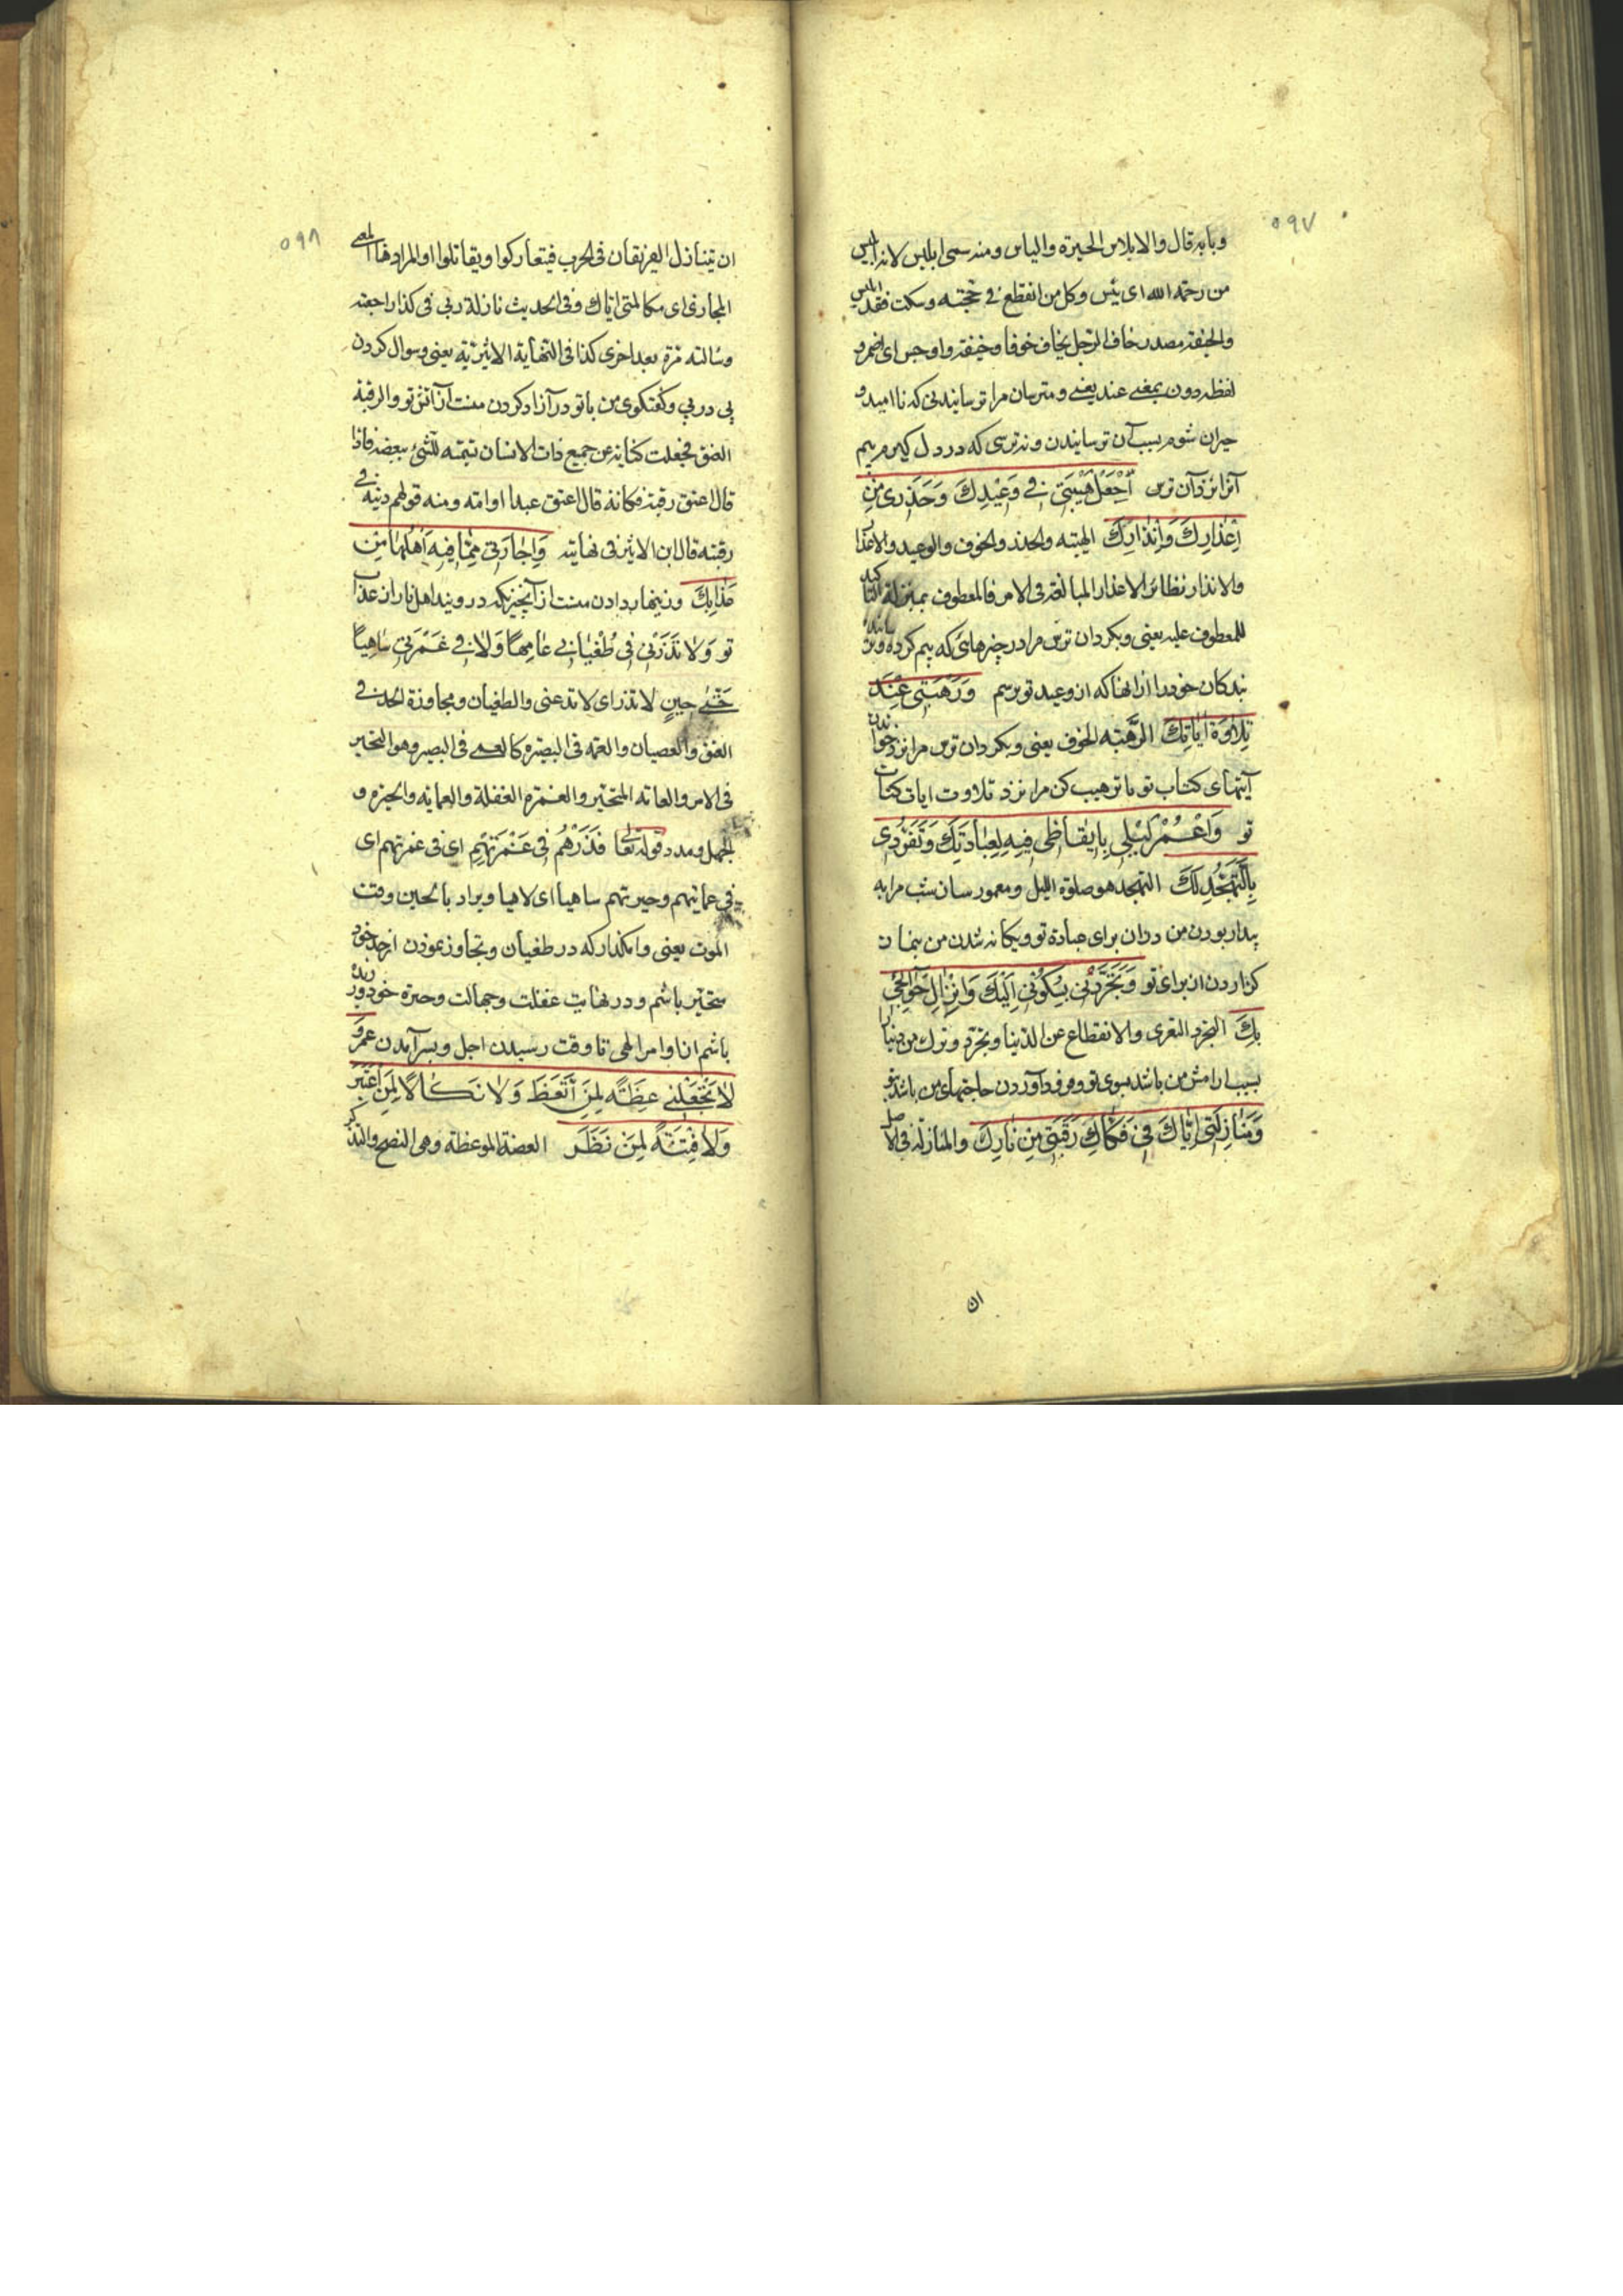 ٥٩٧
وبابه قال والابلاس الحيرة والياس ومنه سمى ابليس لانه ابلس
من رحمة الله اى يئس وكل من انقطع فى حجته وسكت فقد ابلس
والخيفة مصدر خاف الرجل يخاف خوفا وخيفة واوجس اى اضمر و
لفظه دون بمعنى عند يعنى و مترسان مرا ترسانيدنى كه نا اميد و
حيران شوم بسبب آن ترسانيدن ونه ترسى كه در دل كيرم بيم
آنرا نزد آن ترس اِجْعَلْ هَيْبَتى فى وَعيْدِكَ وَحَذَرى مِنْ
اِعْذارِكَ وَاِنْذارِكَ الهيبة والحذر والخوف والوعيد والاعذار
والانذار نظائر الاعذار المبالغة فى الامر فالمعطوف بمنزلة التاكيد
للمعطوف عليه يعنى وبكردان ترس مرا در چيزهائى كه بيم كرده وترسانيده
بندكان خود را از آنها كه از وعيد تو برسم وَرَهْبَتى عِنْدَ
تِلاوَةِ اياتِكَ الرهبة الخوف يعنى وبكردان ترس مرا نزد خواندن
آيتهاى كتاب تو يا ترهيب كن مرا نزد تلاوت ايات كتاب
تو وَاعْمُرْ لَيْلى بِايقاظى فيهِ لِعِبادَتِكَ وَتَفَرُّدى
بِالتَّهَجُّدِ لَكَ التهجد هو صلوة الليل ومعمور سان شب مرا به
بيدار بودن من دران براى عبادة تو ويكانه شدن من بنماز
كزاردن از براى تو وَتَجَرُّدى بِسُكُونى اِلَيْكَ وَاِنْزالِ حَوائِجى
بِكَ التجرد التعرى والانقطاع عن الدنيا وتجرد وترك من دنيا را
بسبب ارامش من باشد بسوى تو وفرود آوردن حاجتهاى من باشد بتو
وَمُنازَلَتى اِيّاكَ فى فَكاكِ رَقَبَتى مِنْ نارِكَ والمنازلة فى الاصل
ان
٥٩٨
ان يتنازل الفريقان فى الحرب فيتعاركوا ويقاتلوا او المراد هنا المعنى
المجازى اى مكالمتى اياك وفى الحديث نازلت ربى فى كذا راجعته
وسالته مرة بعد اخرى كذا فى النهاية الاثيرية يعنى وسوال كردن
پى در پى وكفتكوى من با تو در آزاد كردن منست از آتش تو والرقبة
العنق فجعلت كناية عن جميع ذات الانسان تسمية للشئ ببعضه فاذا
قال اعتق رقبة فكانه قال اعتق عبدا او امة ومنه قولهم دينه فى
رقبته قال ابن الاثير فى نهايته وَاِجارَتى مِمّا فيهِ اَهْلُها مِنْ
عَذابِكَ وزينهار دادن منست از آنچيزيكه درويند اهل نار از عذاب
تو وَلا تَذَرْنى فى طُغْيانى عامِهًا وَلا فى غَمْرَتى ساهِيًا
حَتّى حينٍ لا تذر اى لا تدعنى والطغيان ومجاوزة الحد فى
العتو والعصيان والعمه فى البصيرة كالعمى فى البصر وهو التحير
فى الامر والعامه المتحير والغمرة الغفلة والعماية والحيرة و
الجهل ومدد قوله تعا فَذَرْهُمْ فى غَمْرَتِهِمْ اى فى غمرتهم اى
فى عمايتهم وحيرتهم ساهيا اى لاهيا ويراد بالحين وقت
الموت يعنى وامكذار كه در طغيان وتجاوز نمودن از حد خود
متحير باشم و در نهايت غفلت وجهالت وحيرة خود ورزيده
باشم از اوامر الهى تا وقت رسيدن اجل وبسر آمدن عمر وَ
لا تَجْعَلْنى عِظَةً لِمَنِ اتَّعَظَ وَلا نَكالًا لِمَنِ اعْتَبَرَ
وَلا فِتْنَةً لِمَنْ نَظَرَ العضة الموعظة وهى النصح والتذكر